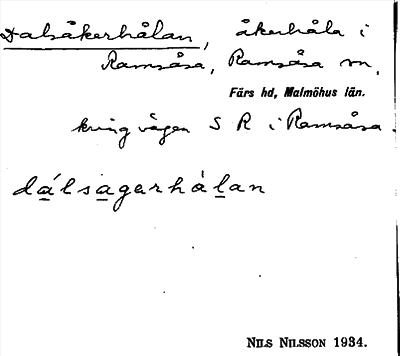 Dalsåkerhålan, åkerhåla i
Ramsåsa, Ramsåsa sn,
Färs hd, Malmöhus län.
kring vägen S R i Ramsåsa.
dálsagarhålan
NILS NILSSON 1934.